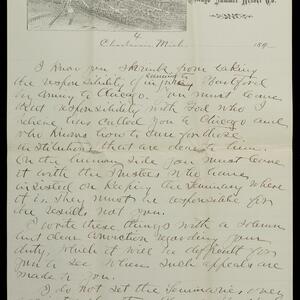 Chicago Summit Resort Co.
4
189
I know you shrink from taking
the responsibility of
running
Hartford
to Chicago. You must leave
that responsibility with God who I
believe has called you to Chicago and
who knows how to care for those
institutions that are done to him.
On the human side you must leave
it with the Trustees who have
insisted on keeping the Seminary where
it is. They must be responsible for
the results not you.
I write these things with a solemn
and clear conviction regarding your
duty, which it will be difficult for
you to see when such appeals are
made to you.
I do not set the Seminaries over